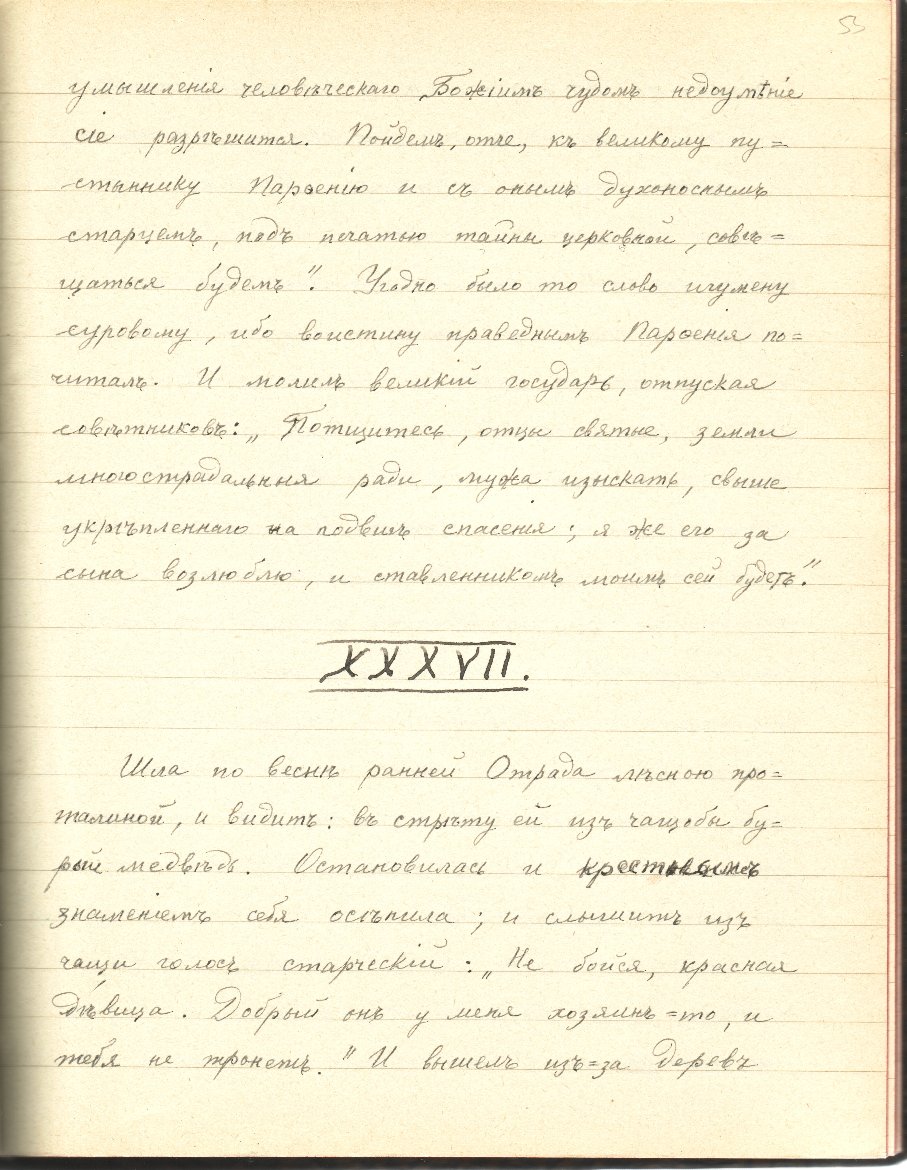 53
умышленія человѣческаго Божіимъ чудомъ недоумѣніе
сіе разрѣшится. Пойдемъ, отче, къ великому пу=
стыннику Парѳенію и съ онымъ духоноснымъ
старцемъ, подъ печатью тайны церковной, совѣ=
щаться будемъ". Угодно было то слово игумену
суровому, ибо воистину праведнымъ Парѳенія по=
читалъ. И молилъ великій государь, отпуская
совѣтниковъ: „Потщитесь, отцы святые, земли
многострадальныя ради, мужа изыскать, свыше
укрѣпленнаго на подвигъ спасенія; я же его за
сына возлюблю, и ставленникомъ моимъ сей будетъ."
XXXVII.
Шла по веснѣ ранней Отрада лѣсною про=
талиной, и видитъ: въ стрѣту ей изъ чащобы бу=
рый медвѣдь. Остановилась и крестнымъ
знаменіемъ себя осѣнила; и слышитъ изъ
чащи голосъ старческій: „Не бойся, красная
дѣвица. Добрый онъ у меня хозяинъ=то, и
тебя не тронетъ." И вышелъ изъ=за деревъ